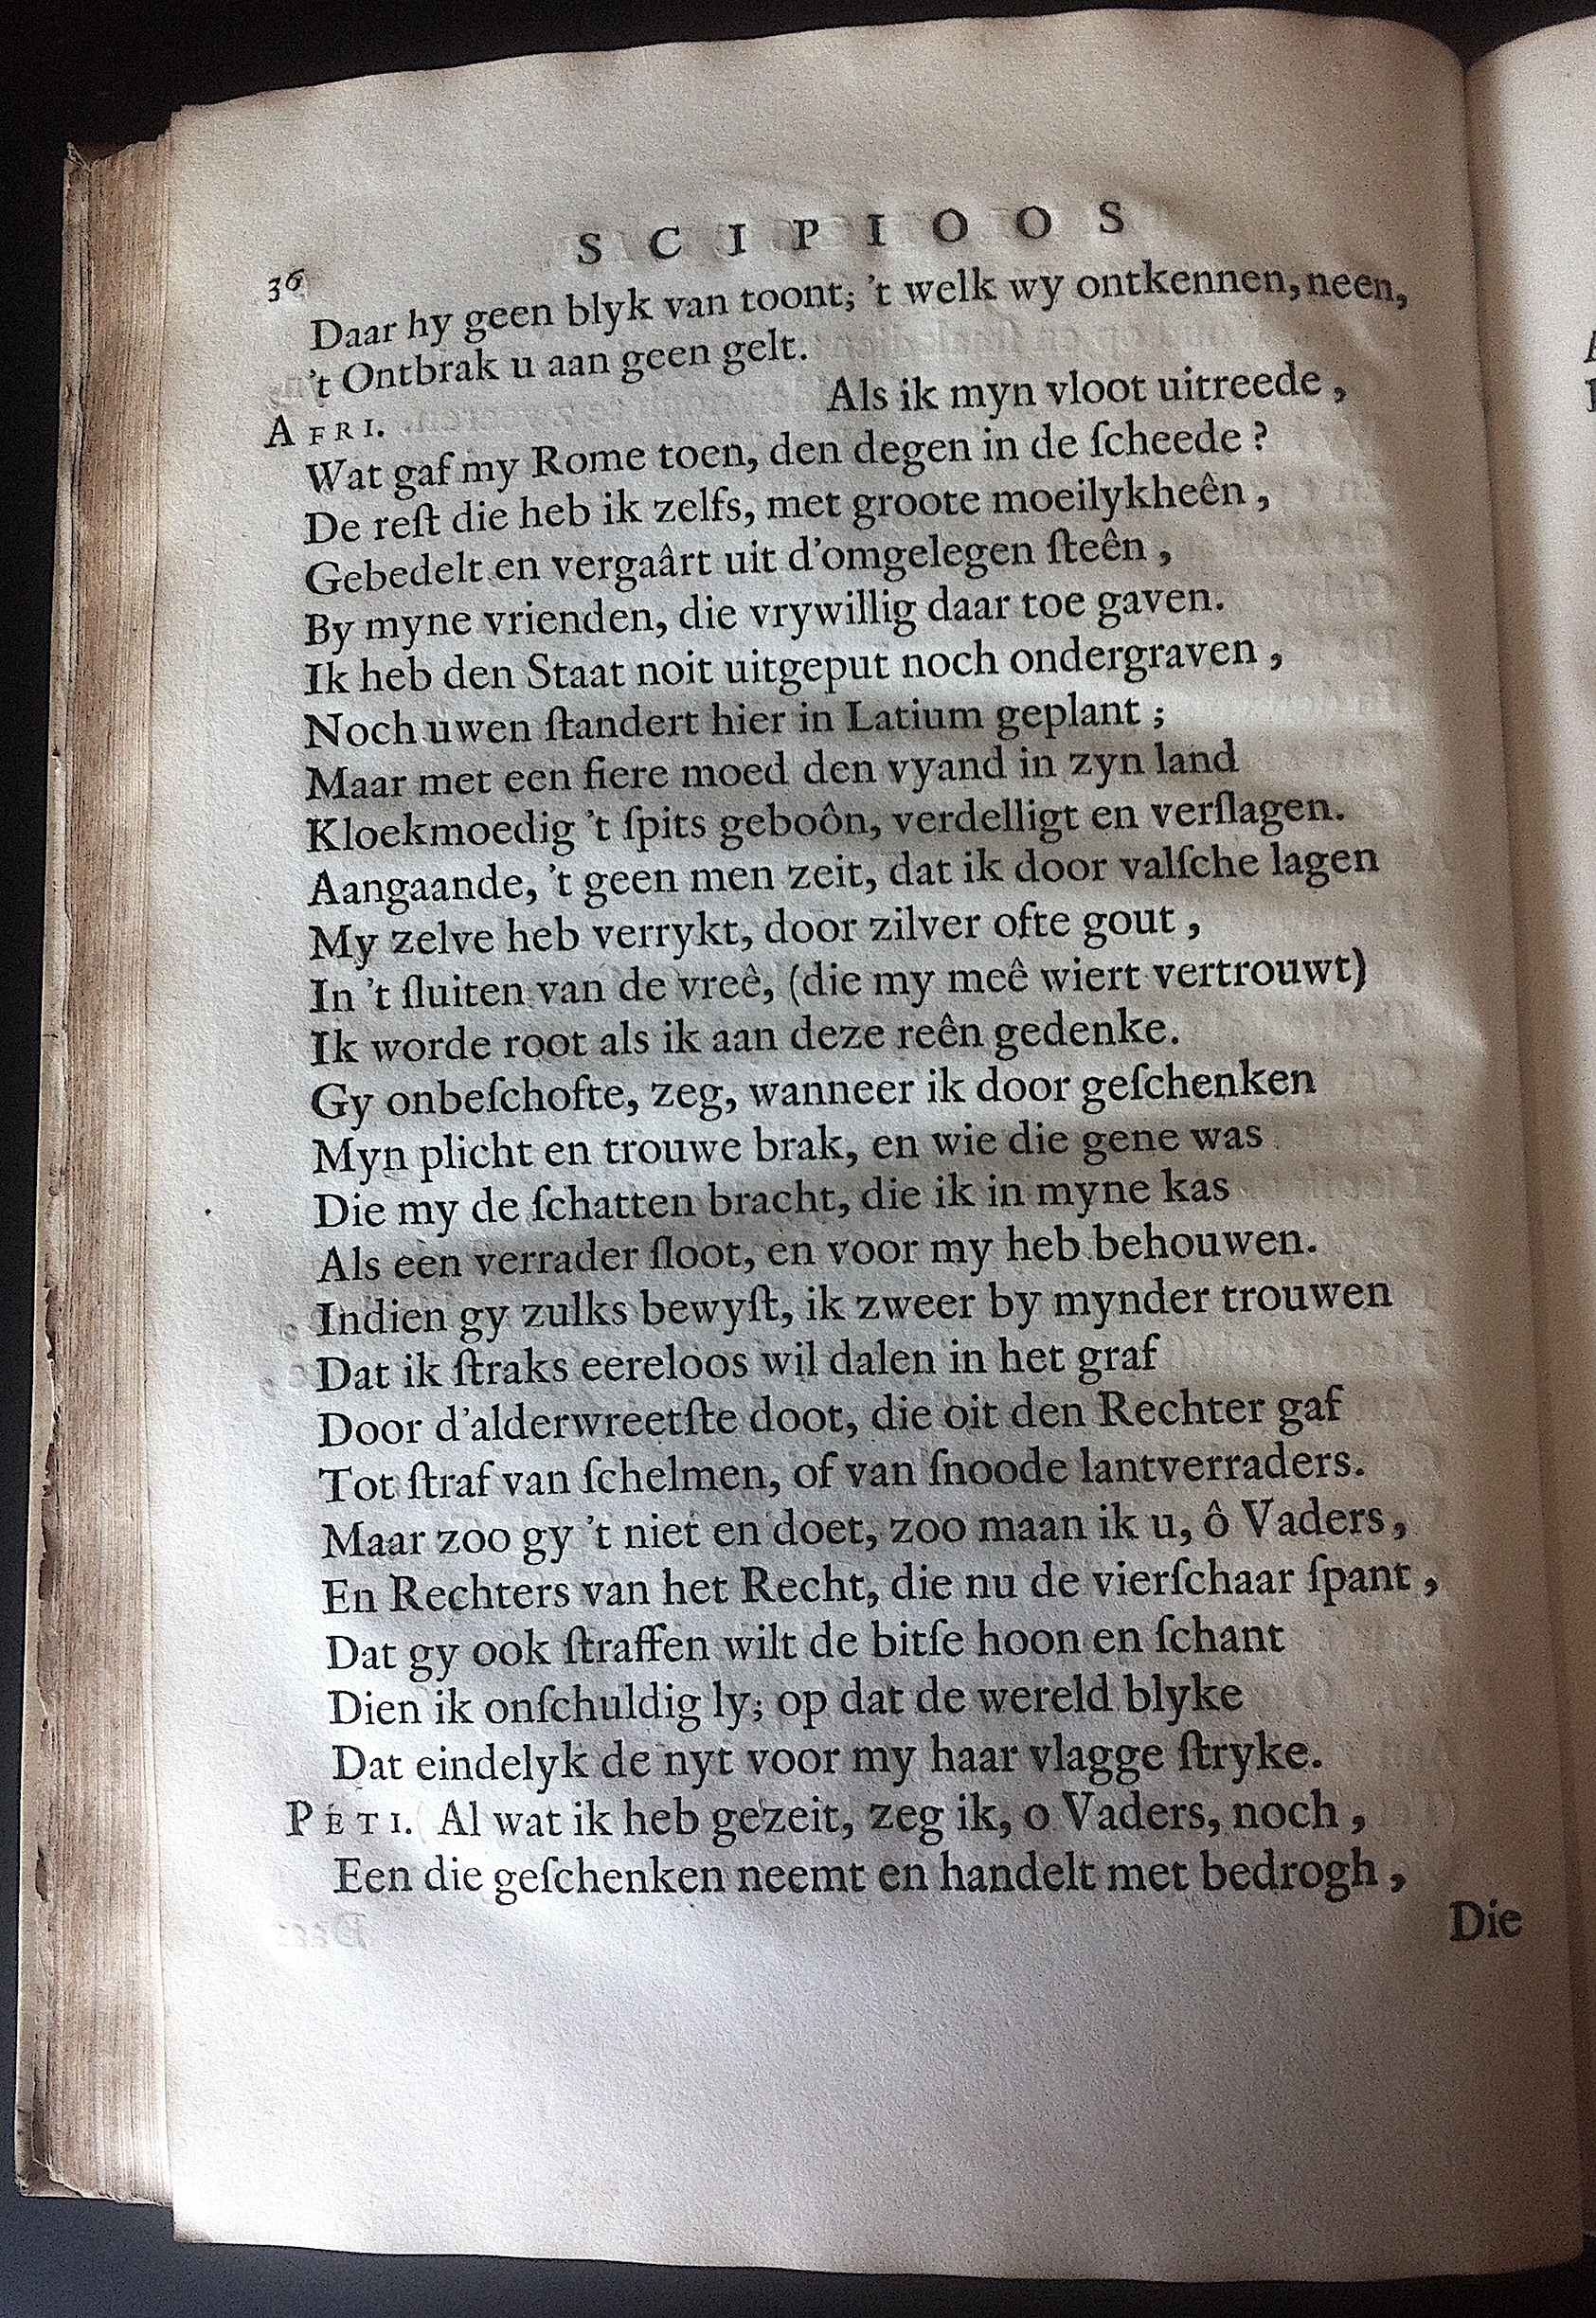 S C I P I O O S
36
Daar hy geen blyk van toont; 't welk wy ontkennen, neen,
't Ontbrak u aan geen gelt.
AFRI. Als ik myn vloot uitreede,
Wat gaf my Rome toen, den degen in de ſcheede?
De reſt die heb ik zelfs, met groote moeilykheên,
Gebedelt en vergaârt uit d'omgelegen ſteên,
By myne vrienden, die vrywillig daar toe gaven.
Ik heb den Staat noit uitgeput noch ondergraven,
Noch uwen ſtandert hier in Latium geplant;
Maar met een fiere moed den vyand in zyn land
Kloekmoedig 't ſpits geboôn, verdelligt en verſlagen.
Aangaande, 't geen men zeit, dat ik door valſche lagen
My zelve heb verrykt, door zilver ofte gout,
In 't ſluiten van de vreê, (die my meê wiert vertrouwt)
Ik worde root als ik aan deze reên gedenke.
Gy onbeſchofte, zeg, wanneer ik door geſchenken
Myn plicht en trouwe brak, en wie die gene was
Die my de ſchatten bracht, die ik in myne kas
Als een verrader ſloot, en voor my heb behouwen.
Indien gy zulks bewyſt, ik zweer by mynder trouwen
Dat ik ſtraks eereloos wil dalen in het graf
Door d'alderwreetſte doot, die oit den Rechter gaf
Tot ſtraf van ſchelmen, of van ſnoode lantverraders.
Maar zoo gy 't niet en doet, zoo maan ik u, ô Vaders,
En Rechters van het Recht, die nu de vierſchaar ſpant,
Dat gy ook ſtraffen wilt de bitſe hoon en ſchant
Dien ik onſchuldig ly; op dat de wereld blyke
Dat eindelyk de nyt voor my haar vlagge ſtryke.
PETI. Al wat ik heb gezeit, zeg ik, o Vaders, noch,
Een die geſchenken neemt en handelt met bedrogh,
Die